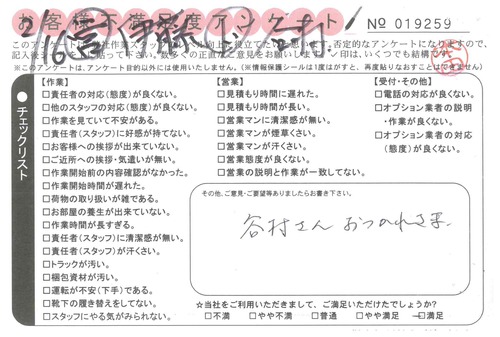 お客様不満足度アンケート № 019259
2/16 伊藤
※このアンケートは、アンケート目的以外には使用いたしません。(※情報保護シールは1度はがすと、再度貼りなおすことはできません)
チェックリスト
【作業】
□責任者の対応(態度)が良くない。
□他のスタッフの対応(態度)が良くない。
□作業を見ていて不安がある。
□責任者(スタッフ)に好感が持てない。
□お客様への挨拶が出来ていない。
□ご近所への挨拶・気遣いが無い。
□作業開始前の内容確認がなかった。
□作業開始時間が遅れた。
□荷物の取り扱いが雑である。
□お部屋の養生が出来ていない。
□作業時間が長すぎる。
□責任者(スタッフ)に清潔感が無い。
□責任者(スタッフ)が汗くさい。
□トラックが汚い。
□梱包資材が汚い。
□運転が不安(下手)である。
□靴下の履き替えをしてない。
□スタッフにやる気がみられない。
【営業】
□見積もり時間に遅れた。
□見積もり時間が長い。
□営業マンに清潔感が無い。
□営業マンが煙草くさい。
□営業マンが汗くさい。
□営業態度が良くない。
□営業の説明と作業が一致してない。
【受付・その他】
□電話の対応が良くない。
□オプション業者の説明
・作業が良くない。
□オプション業者の対応
(態度)が良くない。
その他、ご意見・ご要望等ありましたらお書き下さい。
谷村さん おつかれさま
☆当社をご利用いただきまして、ご満足いただけたでしょうか?
□不満 □やや不満 □普通 □やや満足 □満足